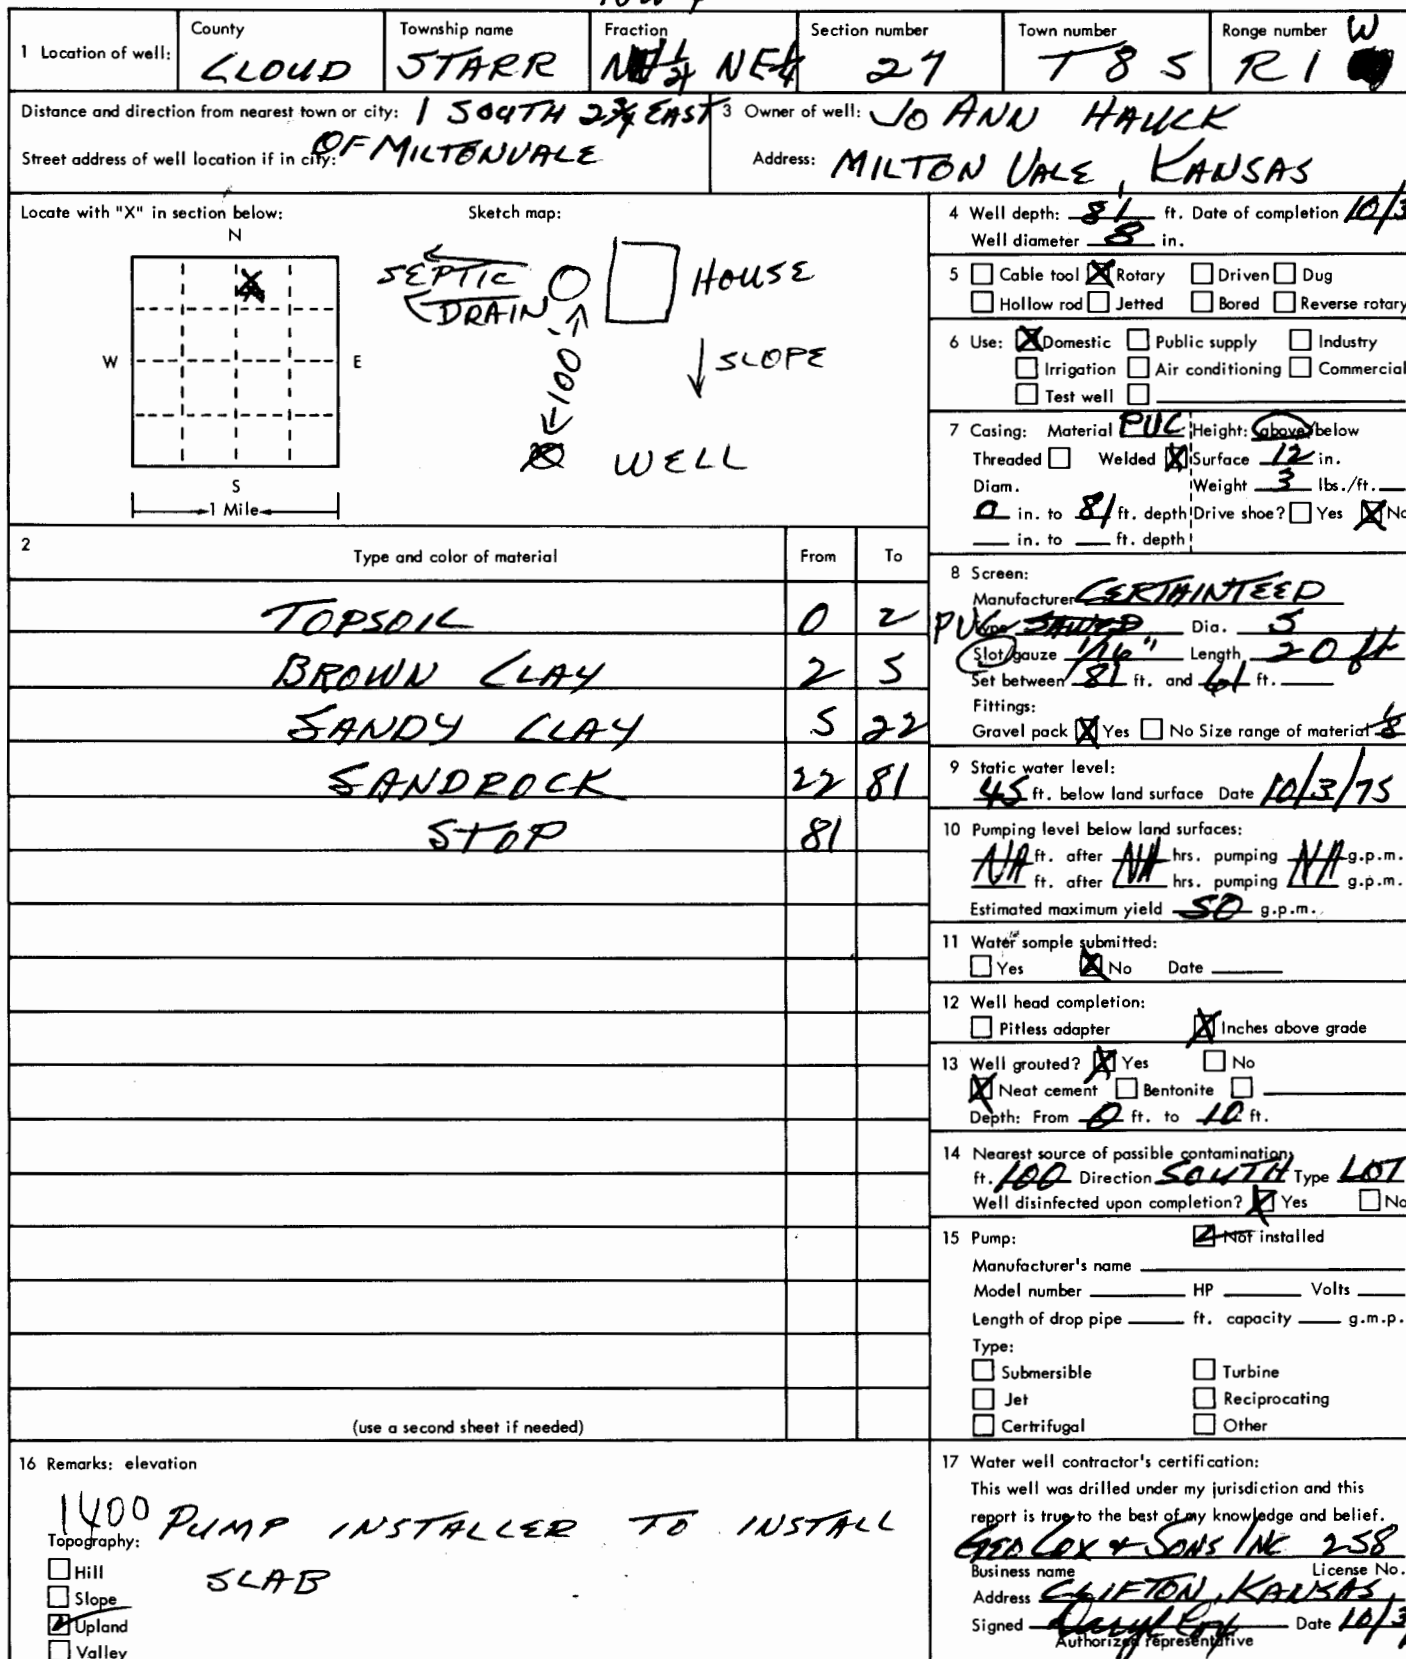 County Township name Fraction Section number Town number Range number W
1 Location of well: CLOUD STARR NE¼ 27 T 8 S R 1
Distance and direction from nearest town or city: 1 SOUTH 2¾ EAST
OF MILTONVALE
Street address of well location if in city:
3 Owner of well: JO ANN HAUCK
Address: MILTON VALE, KANSAS
Locate with "X" in section below:
N
X
W E
S
1 Mile
Sketch map:
SEPTIC
DRAIN
HOUSE
100
SLOPE
WELL
2 Type and color of material From To
TOPSOIL 0 2
BROWN CLAY 2 5
SANDY CLAY 5 22
SANDROCK 22 81
STOP 81
(use a second sheet if needed)
16 Remarks: elevation
1400 PUMP INSTALLER TO INSTALL
SLAB
Topography:
Hill
Slope
Upland
Valley
4 Well depth: 81 ft. Date of completion 10/3
Well diameter 8 in.
5 Cable tool Rotary Driven Dug
Hollow rod Jetted Bored Reverse rotary
6 Use: Domestic Public supply Industry
Irrigation Air conditioning Commercial
Test well
7 Casing: Material PVC Height: above/below
Threaded Welded Surface 12 in.
Diam. Weight 3 lbs./ft.
0 in. to 81 ft. depth Drive shoe? Yes No
in. to ft. depth
8 Screen:
Manufacturer CERTAINTEED
PVC Type SAWED Dia. 5
Slot/gauze 1/16" Length 20 ft
Set between 81 ft. and 61 ft.
Fittings:
Gravel pack Yes No Size range of material 1/8
9 Static water level:
45 ft. below land surface Date 10/3/75
10 Pumping level below land surfaces:
NA ft. after NA hrs. pumping NA g.p.m.
ft. after hrs. pumping g.p.m.
Estimated maximum yield 50 g.p.m.
11 Water sample submitted:
Yes No Date
12 Well head completion:
Pitless adapter Inches above grade
13 Well grouted? Yes No
Neat cement Bentonite
Depth: From 0 ft. to 10 ft.
14 Nearest source of possible contamination
ft. 100 Direction SOUTH Type LOT
Well disinfected upon completion? Yes No
15 Pump: Not installed
Manufacturer's name
Model number HP Volts
Length of drop pipe ft. capacity g.m.p.
Type:
Submersible Turbine
Jet Reciprocating
Certrifugal Other
17 Water well contractor's certification:
This well was drilled under my jurisdiction and this
report is true to the best of my knowledge and belief.
GEO COX & SONS INC 258
Business name License No.
Address CLIFTON, KANSAS
Signed Daryl Cox Date 10/3
Authorized representative